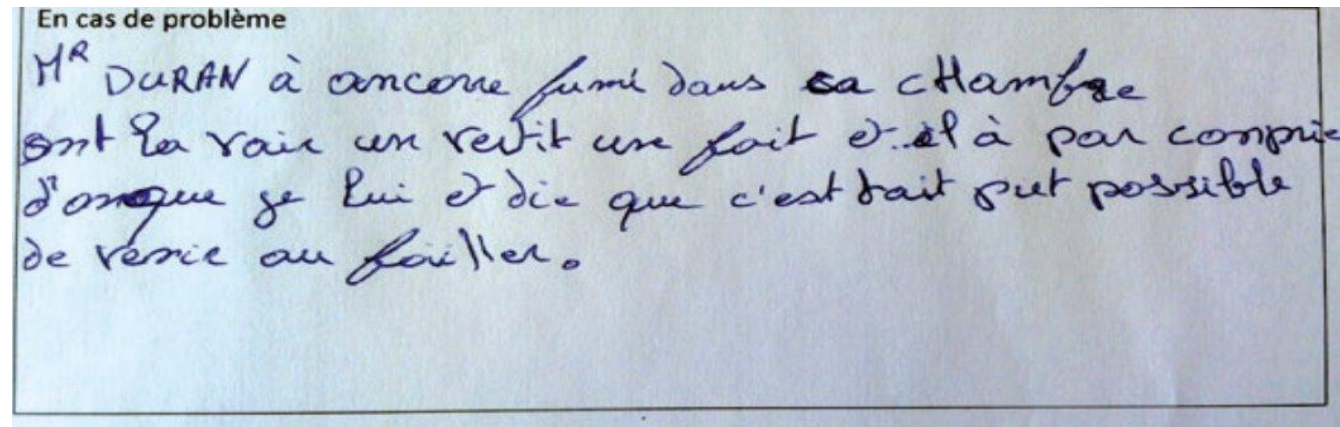 En cas de problème
Mᴿ DURAN à ancorre fumé dans sa cHambre
ont la vair un reutit une fait et il à par comprie
d'onque je lui et die que c'est tait put possible
de venie au foiller.